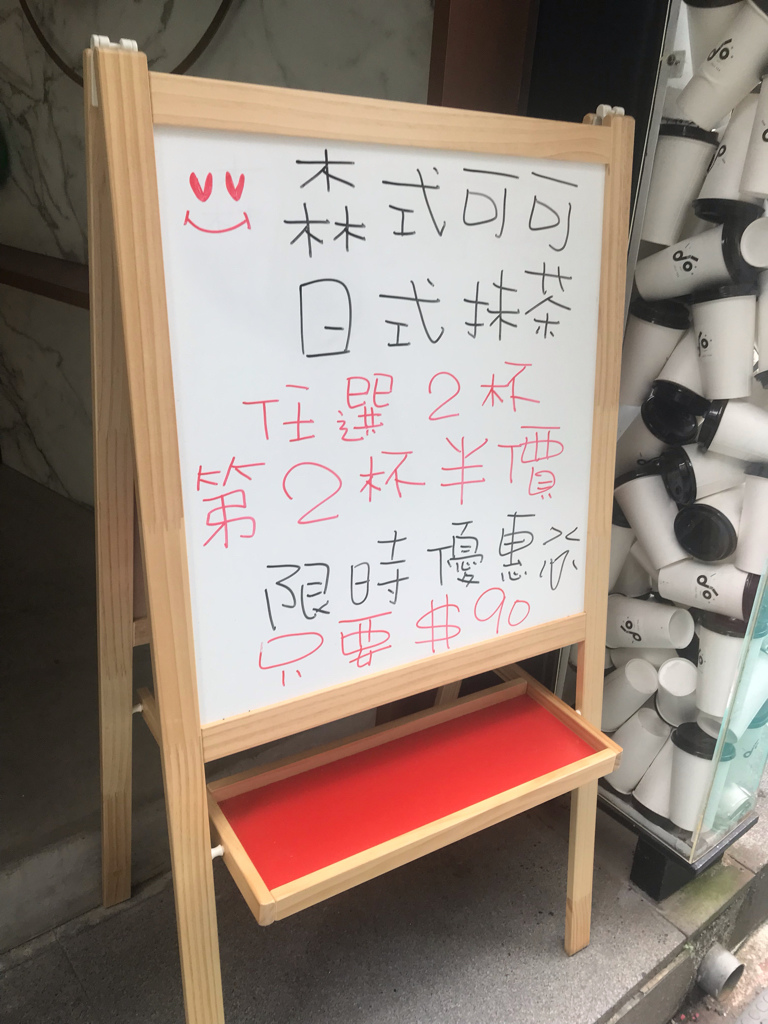 森式可可
日式抹茶
任選2杯
第2杯半價
限時優惠
只要$90